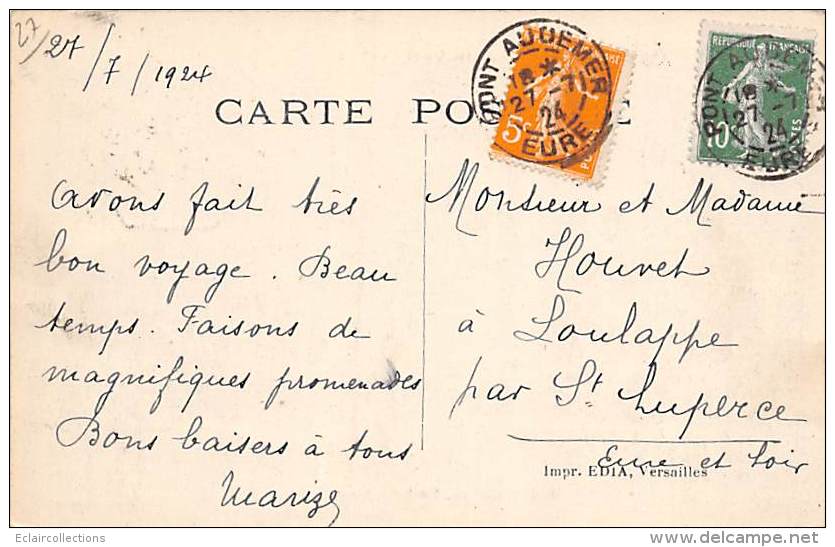 27
27/7/1924
CARTE POSTALE
PONT AUDEMER
18 *
27 -7
24
EURE
5c
REPUBLIQUE FRANÇAISE
10c
POSTES
PONT AUDEMER
18 *
27 -7
24
EURE
avons fait très
bon voyage. Beau
temps. Faisons de
magnifiques promenades
Bons baisers à tous
Marize
Monsieur et Madame
Houvet
à Loulappe
par St Luperce
Eure et Loir
Impr. EDIA, Versailles
Eclaircollections
www.delcampe.net